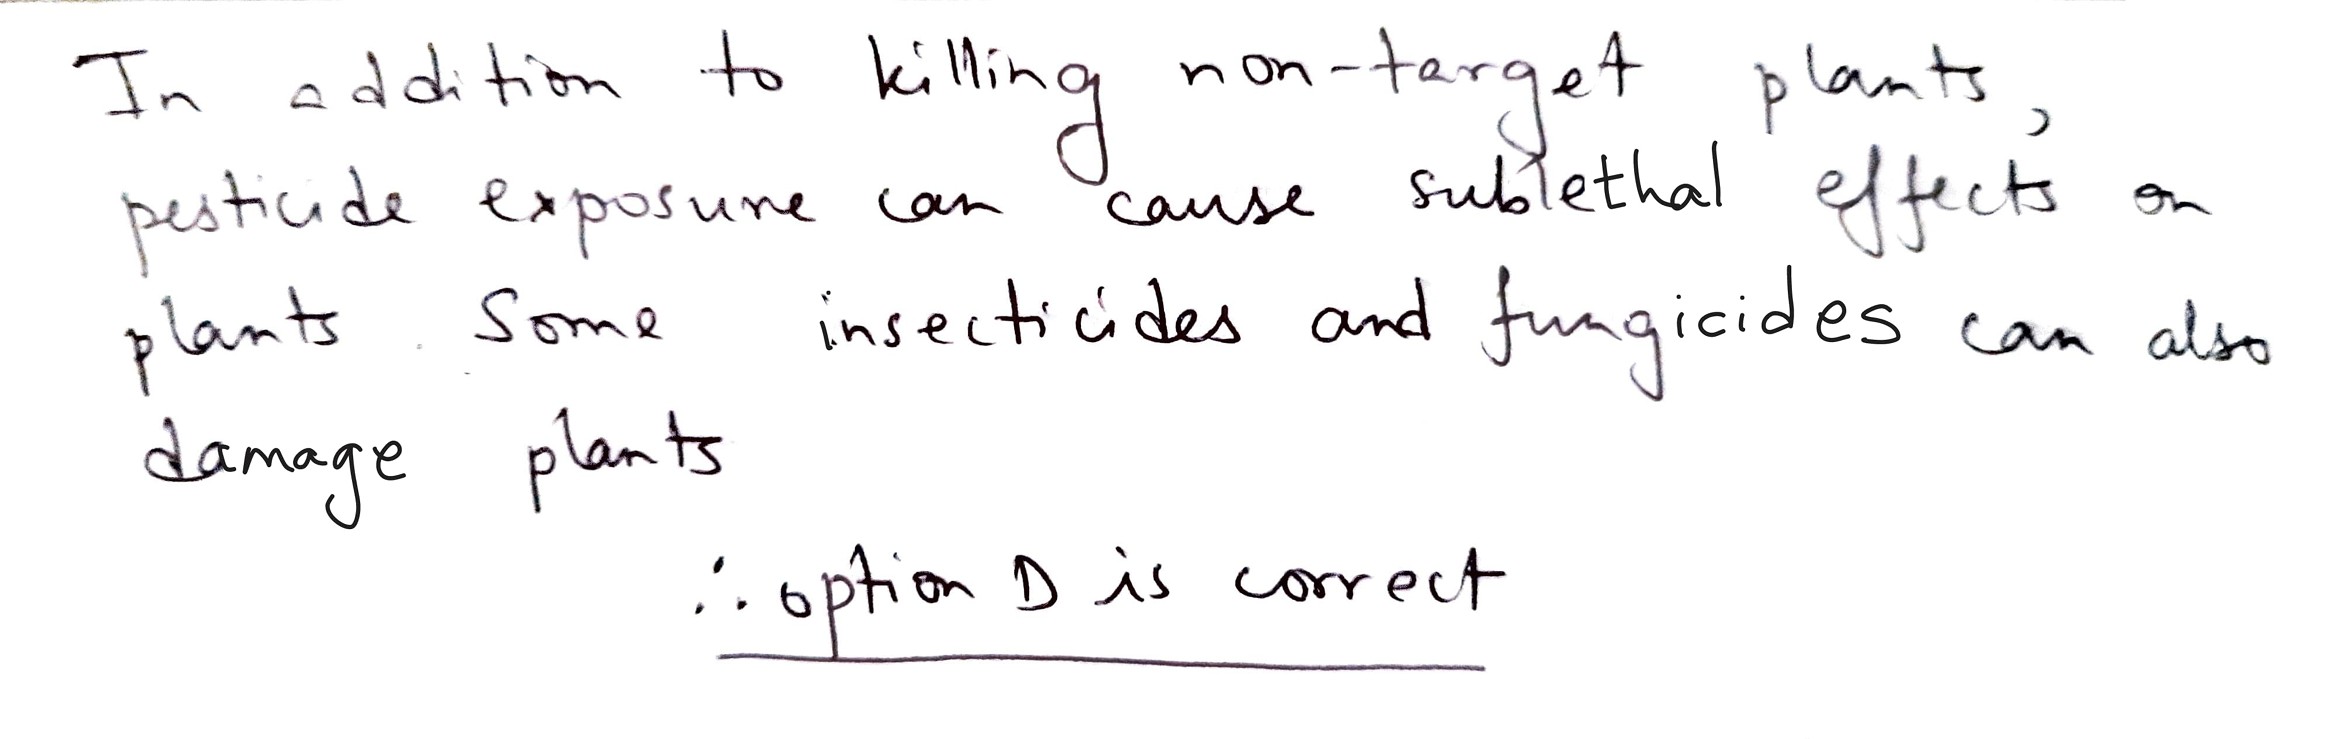 In addition to killing non-target plants,
pesticide exposure can cause sublethal effects on
plants. Some insecticides and fungicides can also
damage plants
∴ option D is correct